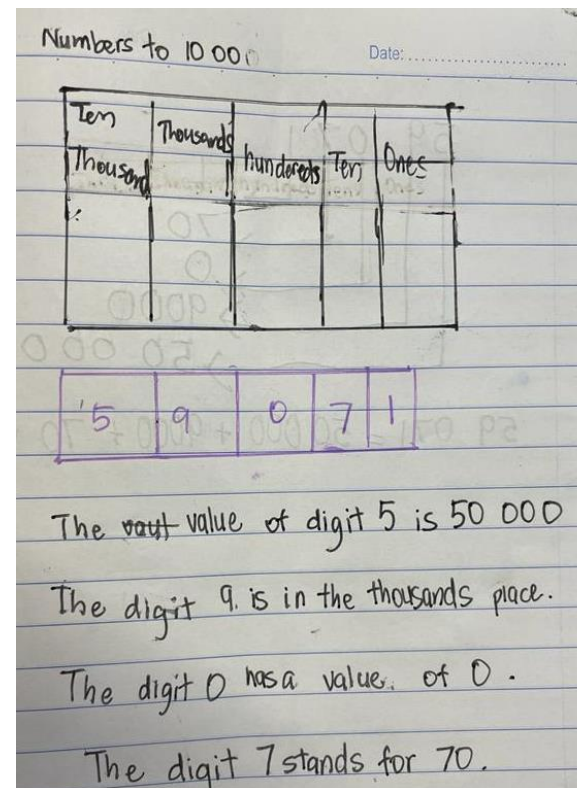 Numbers to 10 000
Date:
Ten Thousand Thousands hundereds Ten Ones
5 9 0 7 1
The value of digit 5 is 50 000
The digit 9. is in the thousands place.
The digit 0 has a value. of 0.
The digit 7 stands for 70.